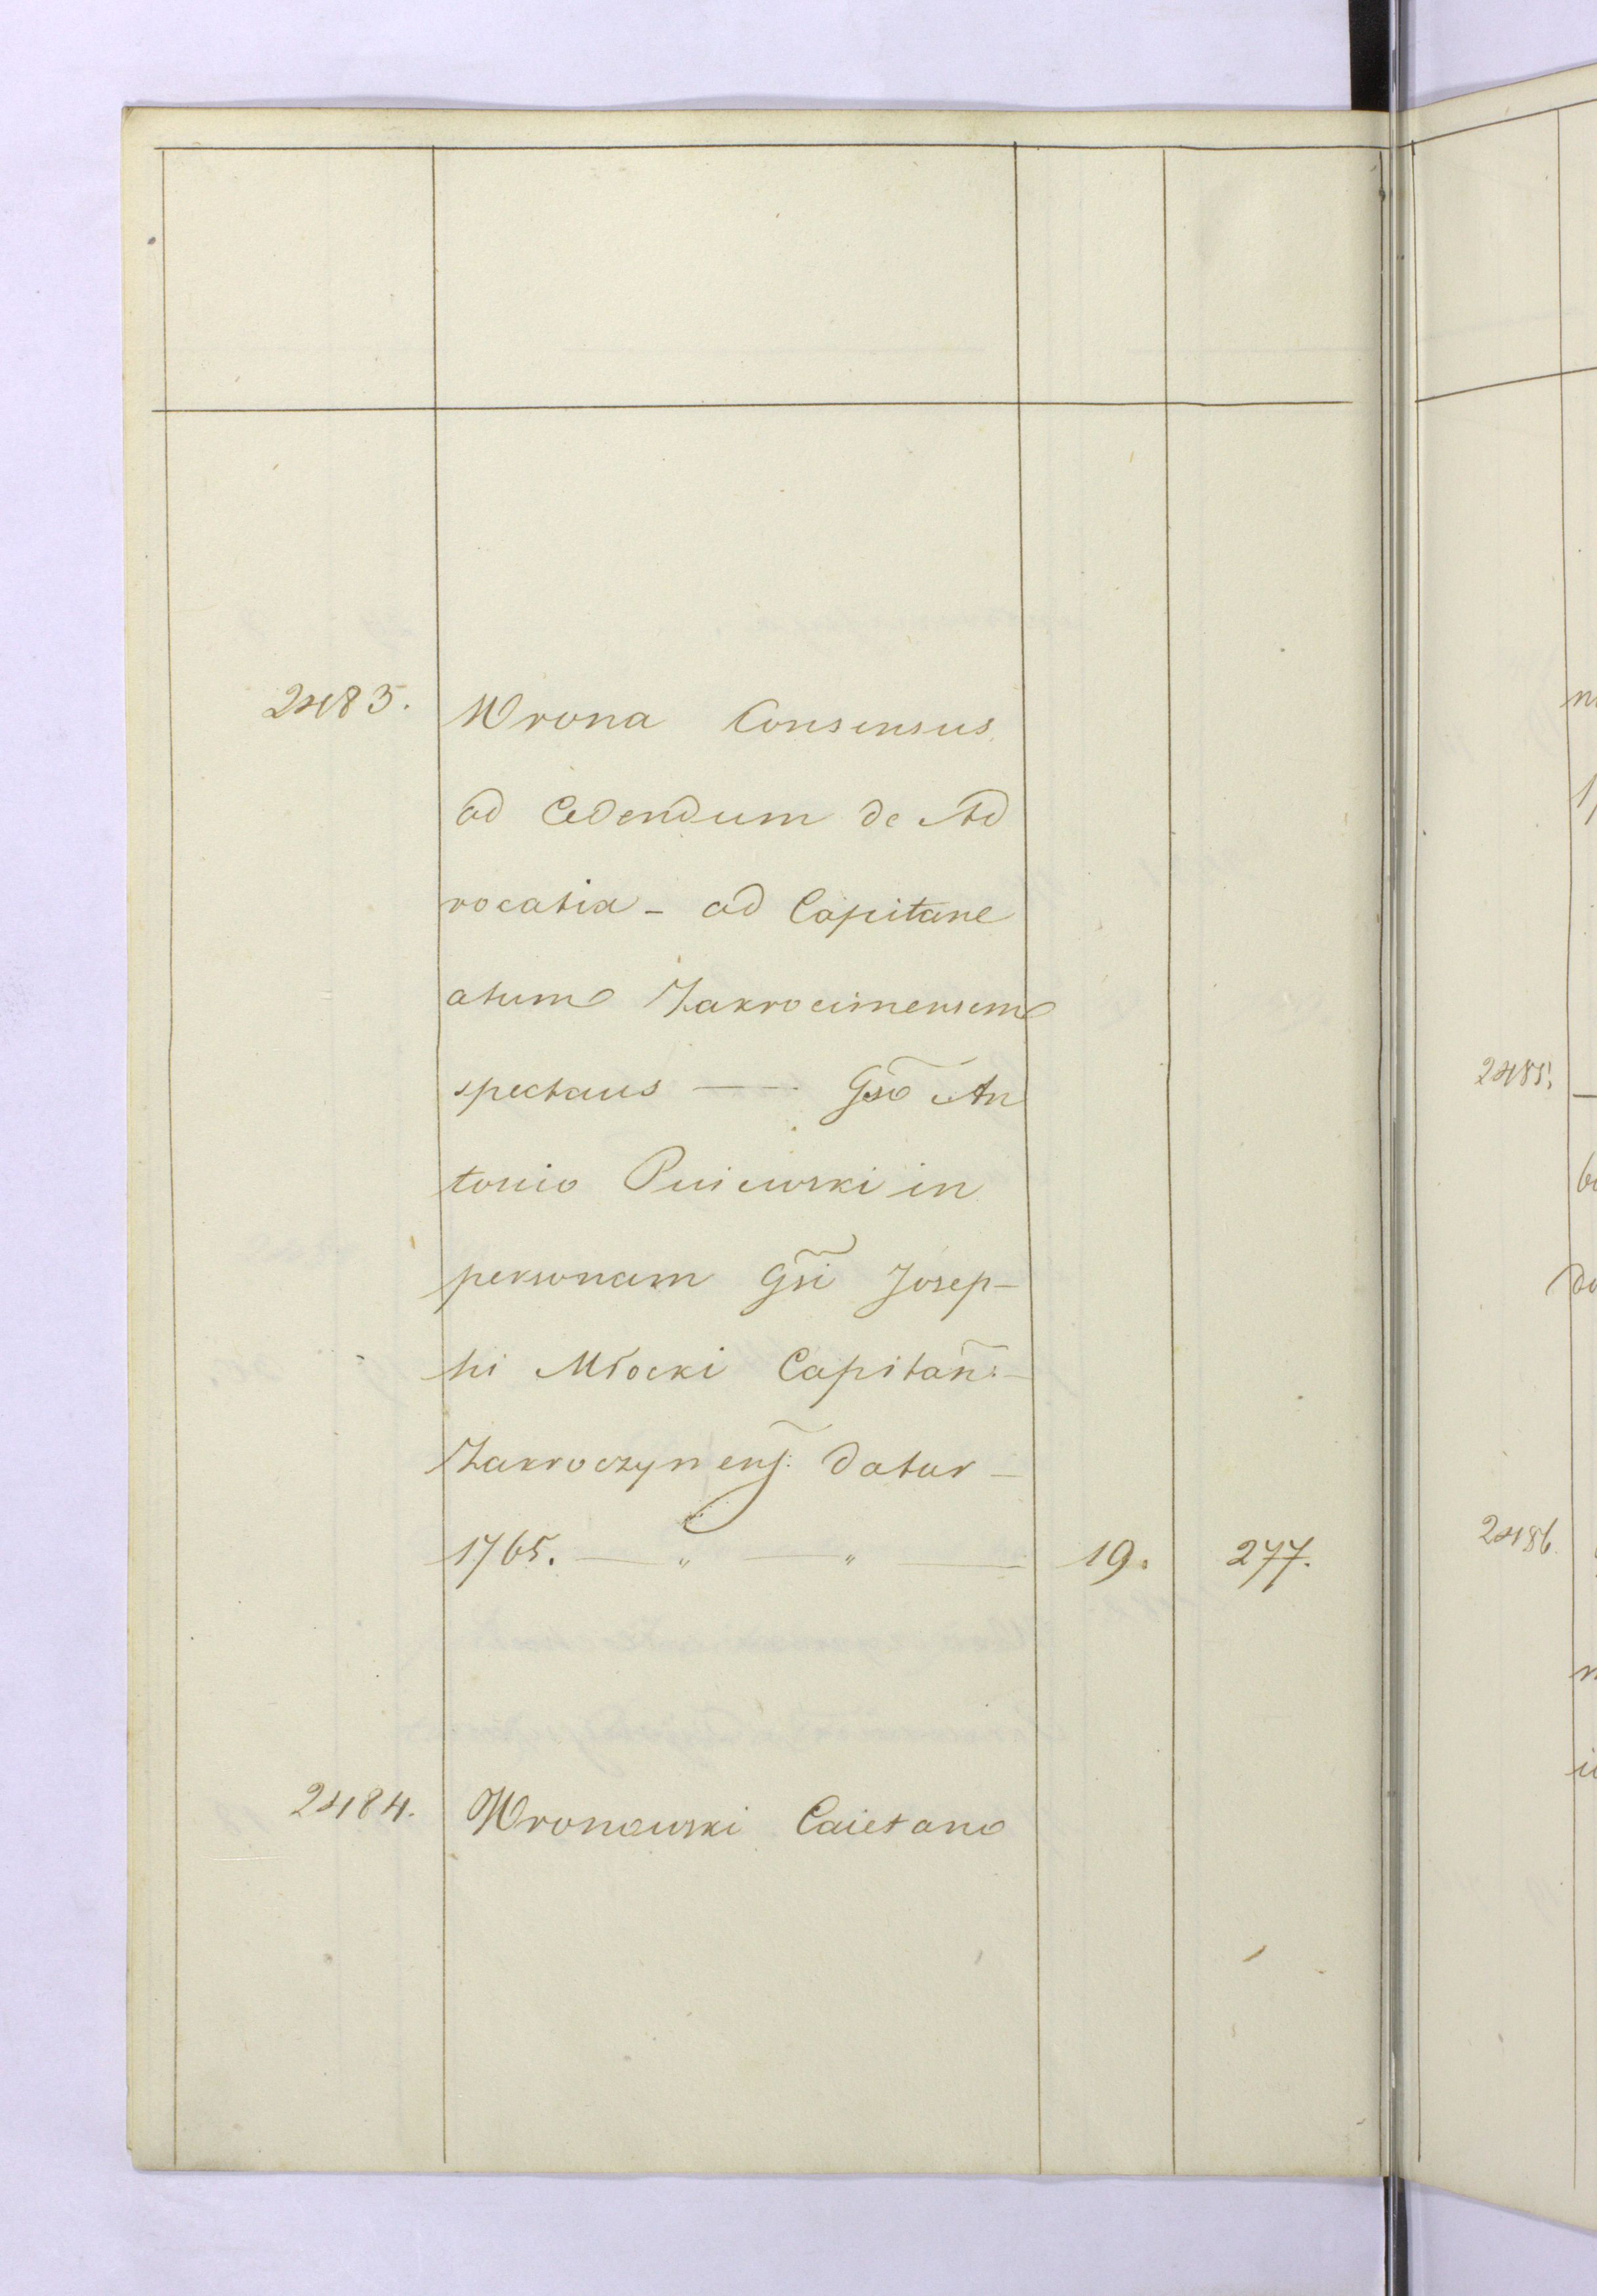 2483. Wrona Consensus
ad Cedendum de Ad
vocatia - ad Capitane
atum Zakrocimensem
spectans — Gso An
tonio Pniewski in
personam Gsi Josep-
hi Młocki Capitan:-
Zakroczymens: datur -
1765. — " — " — 19. 277.
2484. Wronowski Caietano
2485.
2486.